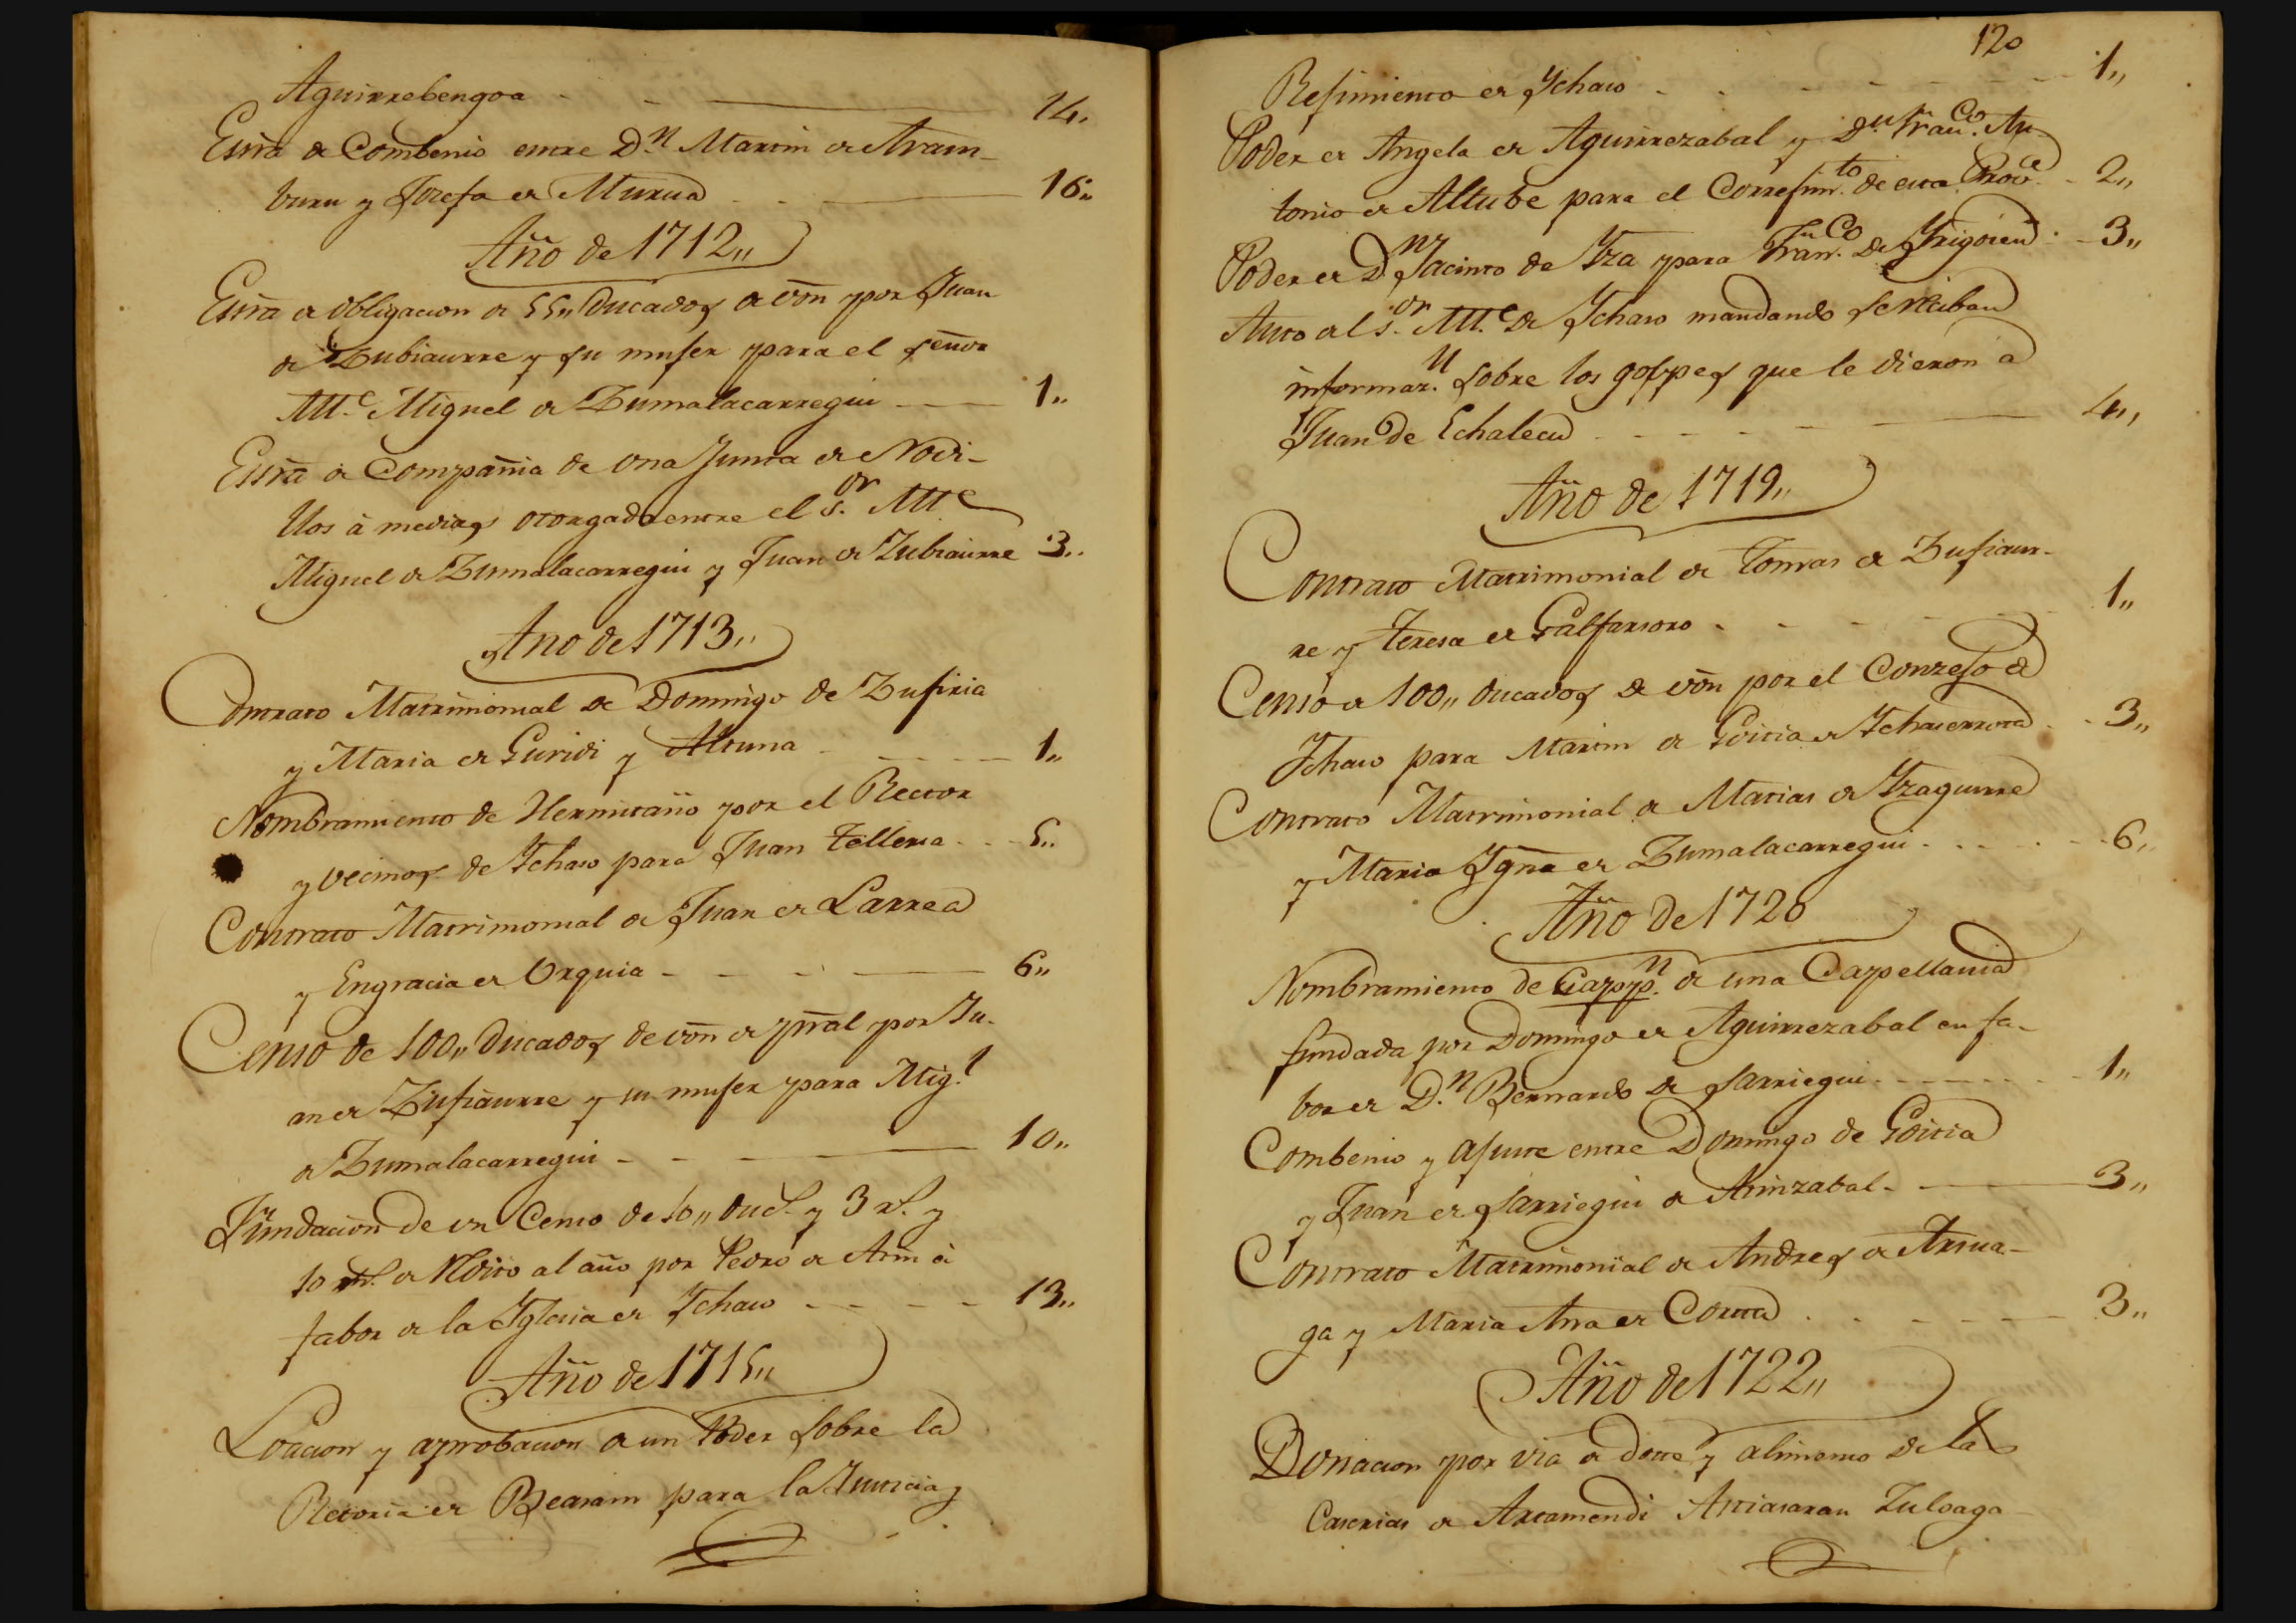 Aguirrebengoa - - 14.
Essra de Combenio entre D.n Martin de Aram-
buru y Josefa de Murua - - 16"
Año de 1712"
Essra de obligacion de 55" Ducados de von por Juan
de Zubiaurre y su muger para el señor
Mtt.e Miguel de Zumalacarregui - 1"
Essra de Compañia de vna Junta de Novi-
llos à medias otorgada entre el S.or Mtt.e
Miguel de Zumalacarregui y Juan de Zubiaurre 3"
Año de 1713"
Contrato Matrimonial de Domingo de Zufiria
y Maria de Guridi y Altuna - 1"
Nombramiento de Hermitaño por el Rector
y vecinos de Ychaso para Juan Telleria - 5"
Contrato Matrimonial de Juan de Larrea
y Engracia de Vrquia - - 6"
Censo de 100" Ducados de von de pral por Ju-
an de Zufiaurre y su muger para Mig.l
de Zumalacarregui - - 10"
Fundacion de vn Censo de 10" Duc.s y 3 r.s y
10 de redito al año por Pedro de Arin à
fabor de la Yglesia de Ychaso - - 13"
Año de 1715"
Loacion y aprobacion de un Poder sobre la
Retoria de Beasain para la Justicia y
120
Regimiento de Ychaso - - 1"
Poder de Angela de Aguirrezabal y D.n Fran.co An-
tonio de Altube para el Corregim.to de esta Prov.e - 2"
Poder de D.n Jacinto de Yza para Fran.co de Yrigoien - 3"
Auto del S.or Mtt.e de Ychaso mandando se reciban
informaz.n sobre los golpes que le dieron à
Juan de Echalecu - - 4"
Año de 1719"
Contrato Matrimonial de Tomas de Zufiaur-
re y Teresa de Galfarsoro - - 1"
Censo de 100" Ducados de von por el Conzejo de
Ychaso para Martin de Goitia de Ychaserrota - 3"
Contrato Matrimonial de Matias de Yzaguirre
y Maria Ygna de Zumalacarregui - - 6"
Año de 1720
Nombramiento de Capp.n de una Capellania
fundada por Domingo de Aguirrezabal en fa-
bor de D.n Bernardo de Sarriegui - - 1"
Combenio y ajuste entre Domingo de Goitia
y Juan de Sarriegui de Arinzabal - 3"
Contrato Matrimonial de Andres de Arsua-
ga y Maria Ana de Corta - - 3"
Año de 1722"
Donacion por via de dote y alimento de las
Caserias de Arcamendi Arriasaran Zuloaga